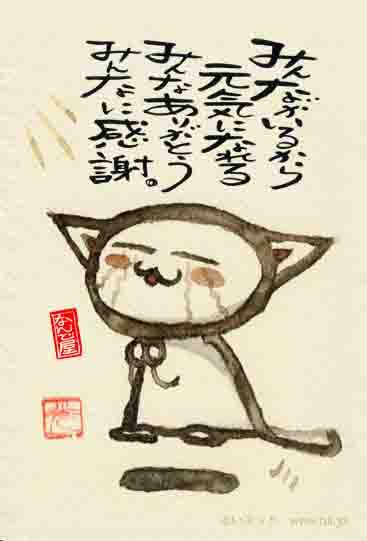 みんながいるから
元気になれる
みんなありがとう
みんなに感謝。
なんで屋